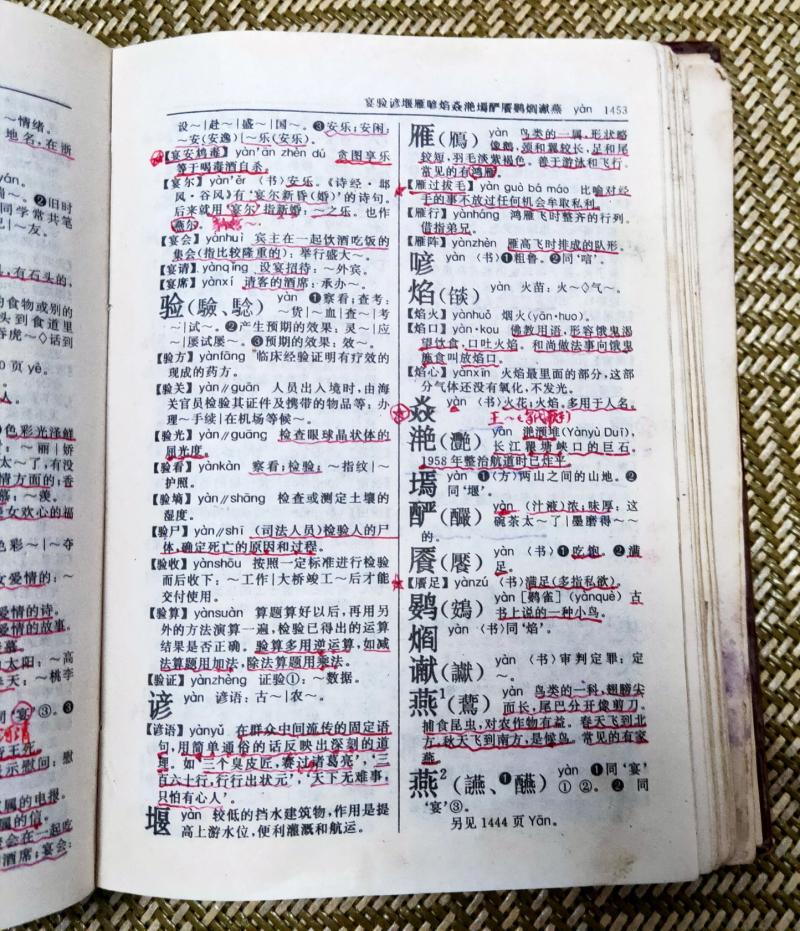 ～情绪。
地名,在浙
yán.
❷旧时
同学常共笔
～友。
,有石头的,
的食物或别的
头到食道里
吞虎～◇话到
0页 yè。
⑤色彩光泽鲜
～丽|娇
太～了,有没
情方面的:香
～羡。
女欢心的福
色彩～|～夺
女爱情的:～
爱情的诗。
爱情的故事。
羡慕。
的太阳:～高
～天:～桃李
'宴'③。❸
晋王死。
示慰问:慰
属的电报。
属的信。
聚会在一起吃
酒席;宴会:
宴验谚堰雁喭焰焱滟墕酽餍鷃爓谳燕 yàn 1453
设～|赴～|盛～|国～。❸安乐;安闲:
～安(安逸)|～乐(安乐)。
【宴安鸩毒】yàn'ān zhèn dú 贪图享乐
等于喝毒酒自杀。
【宴尔】yàn'ěr 〈书〉安乐。《诗经·邶
风·谷风》有'宴尔新昏(婚)'的诗句。
后来就用'宴尔'指新婚:～之乐。也作
燕尔。
【宴会】yànhuì 宾主在一起饮酒吃饭的
集会(指比较隆重的):举行盛大～。
【宴请】yànqǐng 设宴招待:～外宾。
【宴席】yànxí 请客的酒席:承办～。
验(驗、騐) yàn ❶察看;查考:
～货|～血|查～|考
～|试～。❷产生预期的效果:灵～|应
～|屡试屡～。❸预期的效果:效～。
【验方】yànfāng 临床经验证明有疗效的
现成的药方。
【验关】yàn∥guān 人员出入境时,由海
关官员检验其证件及携带的物品等:办
理～手续|在机场等候～。
【验光】yàn∥guāng 检查眼球晶状体的
屈光度。
【验看】yànkàn 察看;检验:～指纹|～
护照。
【验墒】yàn∥shāng 检查或测定土壤的
湿度。
【验尸】yàn∥shī (司法人员)检验人的尸
体,确定死亡的原因和过程。
【验收】yànshōu 按照一定标准进行检验
而后收下:～工作|大桥竣工～后才能
交付使用。
【验算】yànsuàn 算题算好以后,再用另
外的方法演算一遍,检验已得出的运算
结果是否正确。验算多用逆运算,如减
法算题用加法,除法算题用乘法。
【验证】yànzhèng 证验①:～数据。
谚 yàn 谚语:古～|农～。
【谚语】yànyǔ 在群众中间流传的固定语
句,用简单通俗的话反映出深刻的道
理。如'三个臭皮匠,赛过诸葛亮','三
百六十行,行行出状元','天下无难事,
只怕有心人'。
堰 yàn 较低的挡水建筑物,作用是提
高上游水位,便利灌溉和航运。
雁(鴈) yàn 鸟类的一属,形状略
像鹅,颈和翼较长,足和尾
较短,羽毛淡紫褐色。善于游泳和飞行。
常见的有鸿雁。
【雁过拔毛】yàn guò bá máo 比喻对经
手的事不放过任何机会牟取私利。
【雁行】yànháng 鸿雁飞时整齐的行列。
借指弟兄。
【雁阵】yànzhèn 雁高飞时排成的队形。
喭 yàn 〈书〉❶粗鲁。❷同'唁'。
焰(燄) yàn 火苗:火～◇气～。
【焰火】yànhuǒ 烟火(yān·huo)。
【焰口】yàn·kou 佛教用语,形容饿鬼渴
望饮食,口吐火焰。和尚做法事向饿鬼
施食叫放焰口。
【焰心】yànxīn 火焰最里面的部分,这部
分气体还没有氧化,不发光。
焱 yàn 〈书〉火花;火焰。多用于人名。
滟(灧) yàn 滟滪堆(Yànyù Duī),
长江瞿塘峡口的巨石。
1958年整治航道时已炸平。
墕 yàn ❶〈方〉两山之间的山地。❷
同'堰'。
酽(釅) yàn (汁液)浓;味厚:这
碗茶太～了|墨磨得～～
的。
餍(饜) yàn 〈书〉❶吃饱。❷满
足。
【餍足】yànzú 〈书〉满足(多指私欲)。
鷃(鴳) yàn [鷃雀](yànquè)古
书上说的一种小鸟。
爓 yàn 〈书〉同'焰'。
谳(讞) yàn 〈书〉审判定罪:定
～。
燕¹(鷰) yàn 鸟类的一科,翅膀尖
而长,尾巴分开像剪刀。
捕食昆虫,对农作物有益。春天飞到北
方,秋天飞到南方,是候鸟。常见的有家
燕。
燕²(讌、❶醼) yàn ❶同'宴'
①②。❷同
'宴'③。
另见 1444 页 Yān。